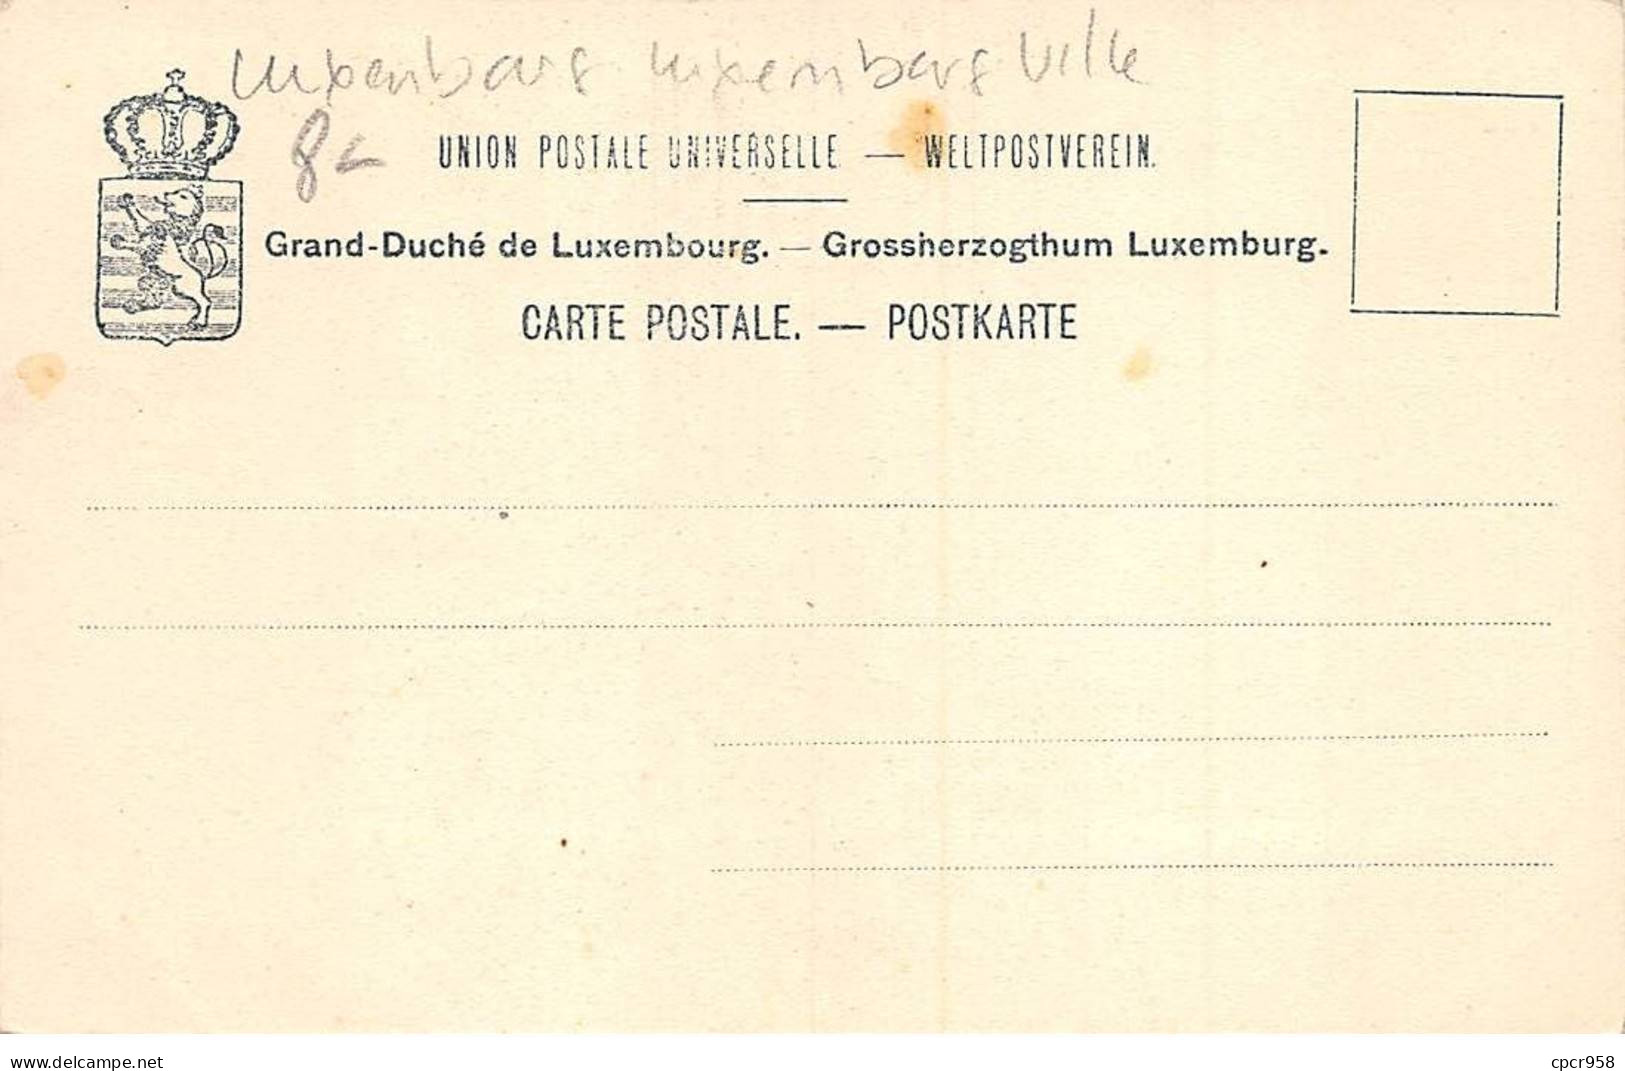 Luxembourg Luxembourg Ville
8€
UNION POSTALE UNIVERSELLE — WELTPOSTVEREIN.
Grand-Duché de Luxembourg. — Grossherzogthum Luxemburg.
CARTE POSTALE. — POSTKARTE
www.delcampe.net
cpcr958